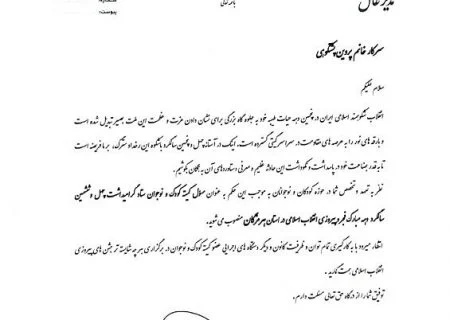 شماره
باسمه تعالی
پیوست:
مدیر
سرکار خانم پروین پشتکوهی
سلام علیکم
انقلاب شکوهمند اسلامی ایران در پنجمین دهه حیات طیبه خود به جلوه گاه بزرگی برای نشان دادن عزت و عظمت این ملت بصیر تبدیل شده است
و بارقه های نور را به عرصه های مقاومت در سراسر گیتی گسترده است. اینک در آستانه چهل و پنجمین سالگرد باشکوه این رخداد سترگ، بر ما فرض است
تا به قدر بضاعت خود در پاسداشت و نکوداشت این حادثه عظیم و معرفی دستاوردهای آن به جهان بکوشیم.
نظر به تعهد و تخصص شما در حوزه کودکان و نوجوانان به موجب این حکم به عنوان مسئول کمیته کودک و نوجوان ستاد گرامیداشت چهل و ششمین
سالگرد دهه مبارک فجر و پیروزی انقلاب اسلامی در استان هرمزگان منصوب می شوید.
انتظار میرود با به کارگیری تمام توان و ظرفیت کانون و دیگر دستگاه های اجرایی عضو کمیته کودک و نوجوان در برگزاری هر چه شایسته تر جشن های پیروزی
انقلاب اسلامی همت گمارید.
توفیق شما را از درگاه حق تعالی مسئلت دارم.